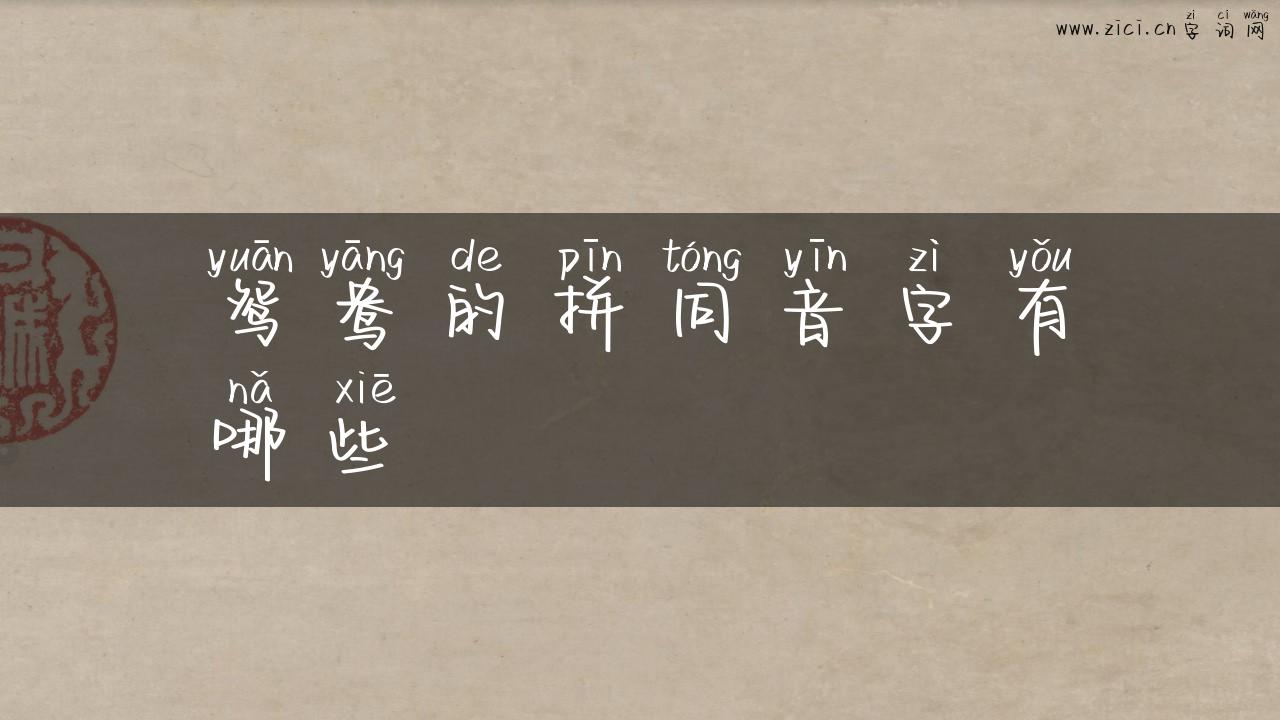 zì cí wǎng
www.zici.cn字词网
yuān yāng de pīn tóng yīn zì yǒu
鸳鸯的拼同音字有
nǎ xiē
哪些